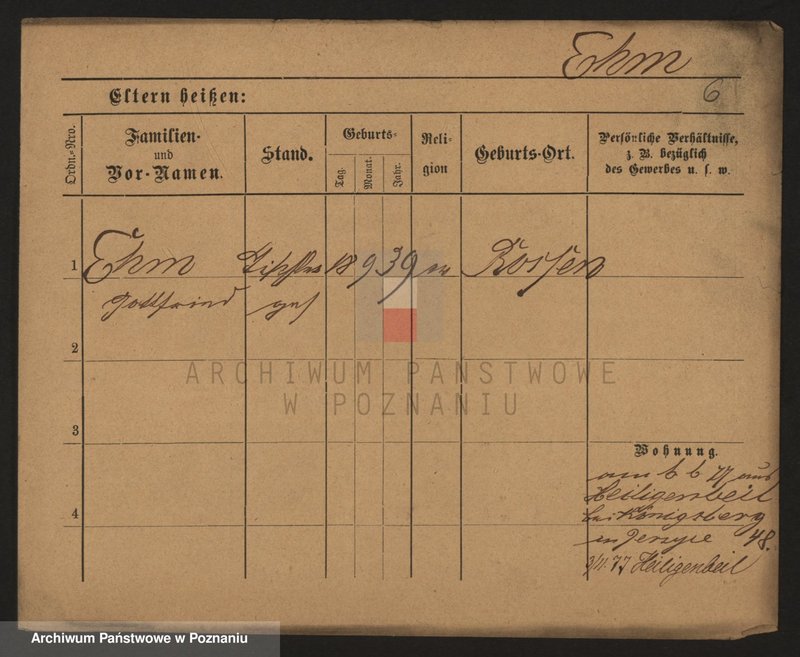 Ehm
6
Eltern heißen:
Ordn.-Nro.
Familien-
und
Vor-Namen.
Stand.
Geburts-
Tag.
Monat.
Jahr.
Reli-
gion
Geburts-Ort.
Persönliche Verhältnisse,
z. B. bezüglich
des Gewerbes u. s. w.
1 Ehm Tischler 18 9 39 ev Rossen
Gottfried ges
2
3
4
Wohnung.
am 6 6 77 aus
Heiligenbeil
bei Königsberg
in Jersyce 48.
77 Heiligenbeil
ARCHIWUM PAŃSTWOWE
W POZNANIU
Archiwum Państwowe w Poznaniu